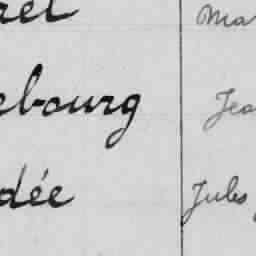 ael Ma
ebourg Jea
dée Jules